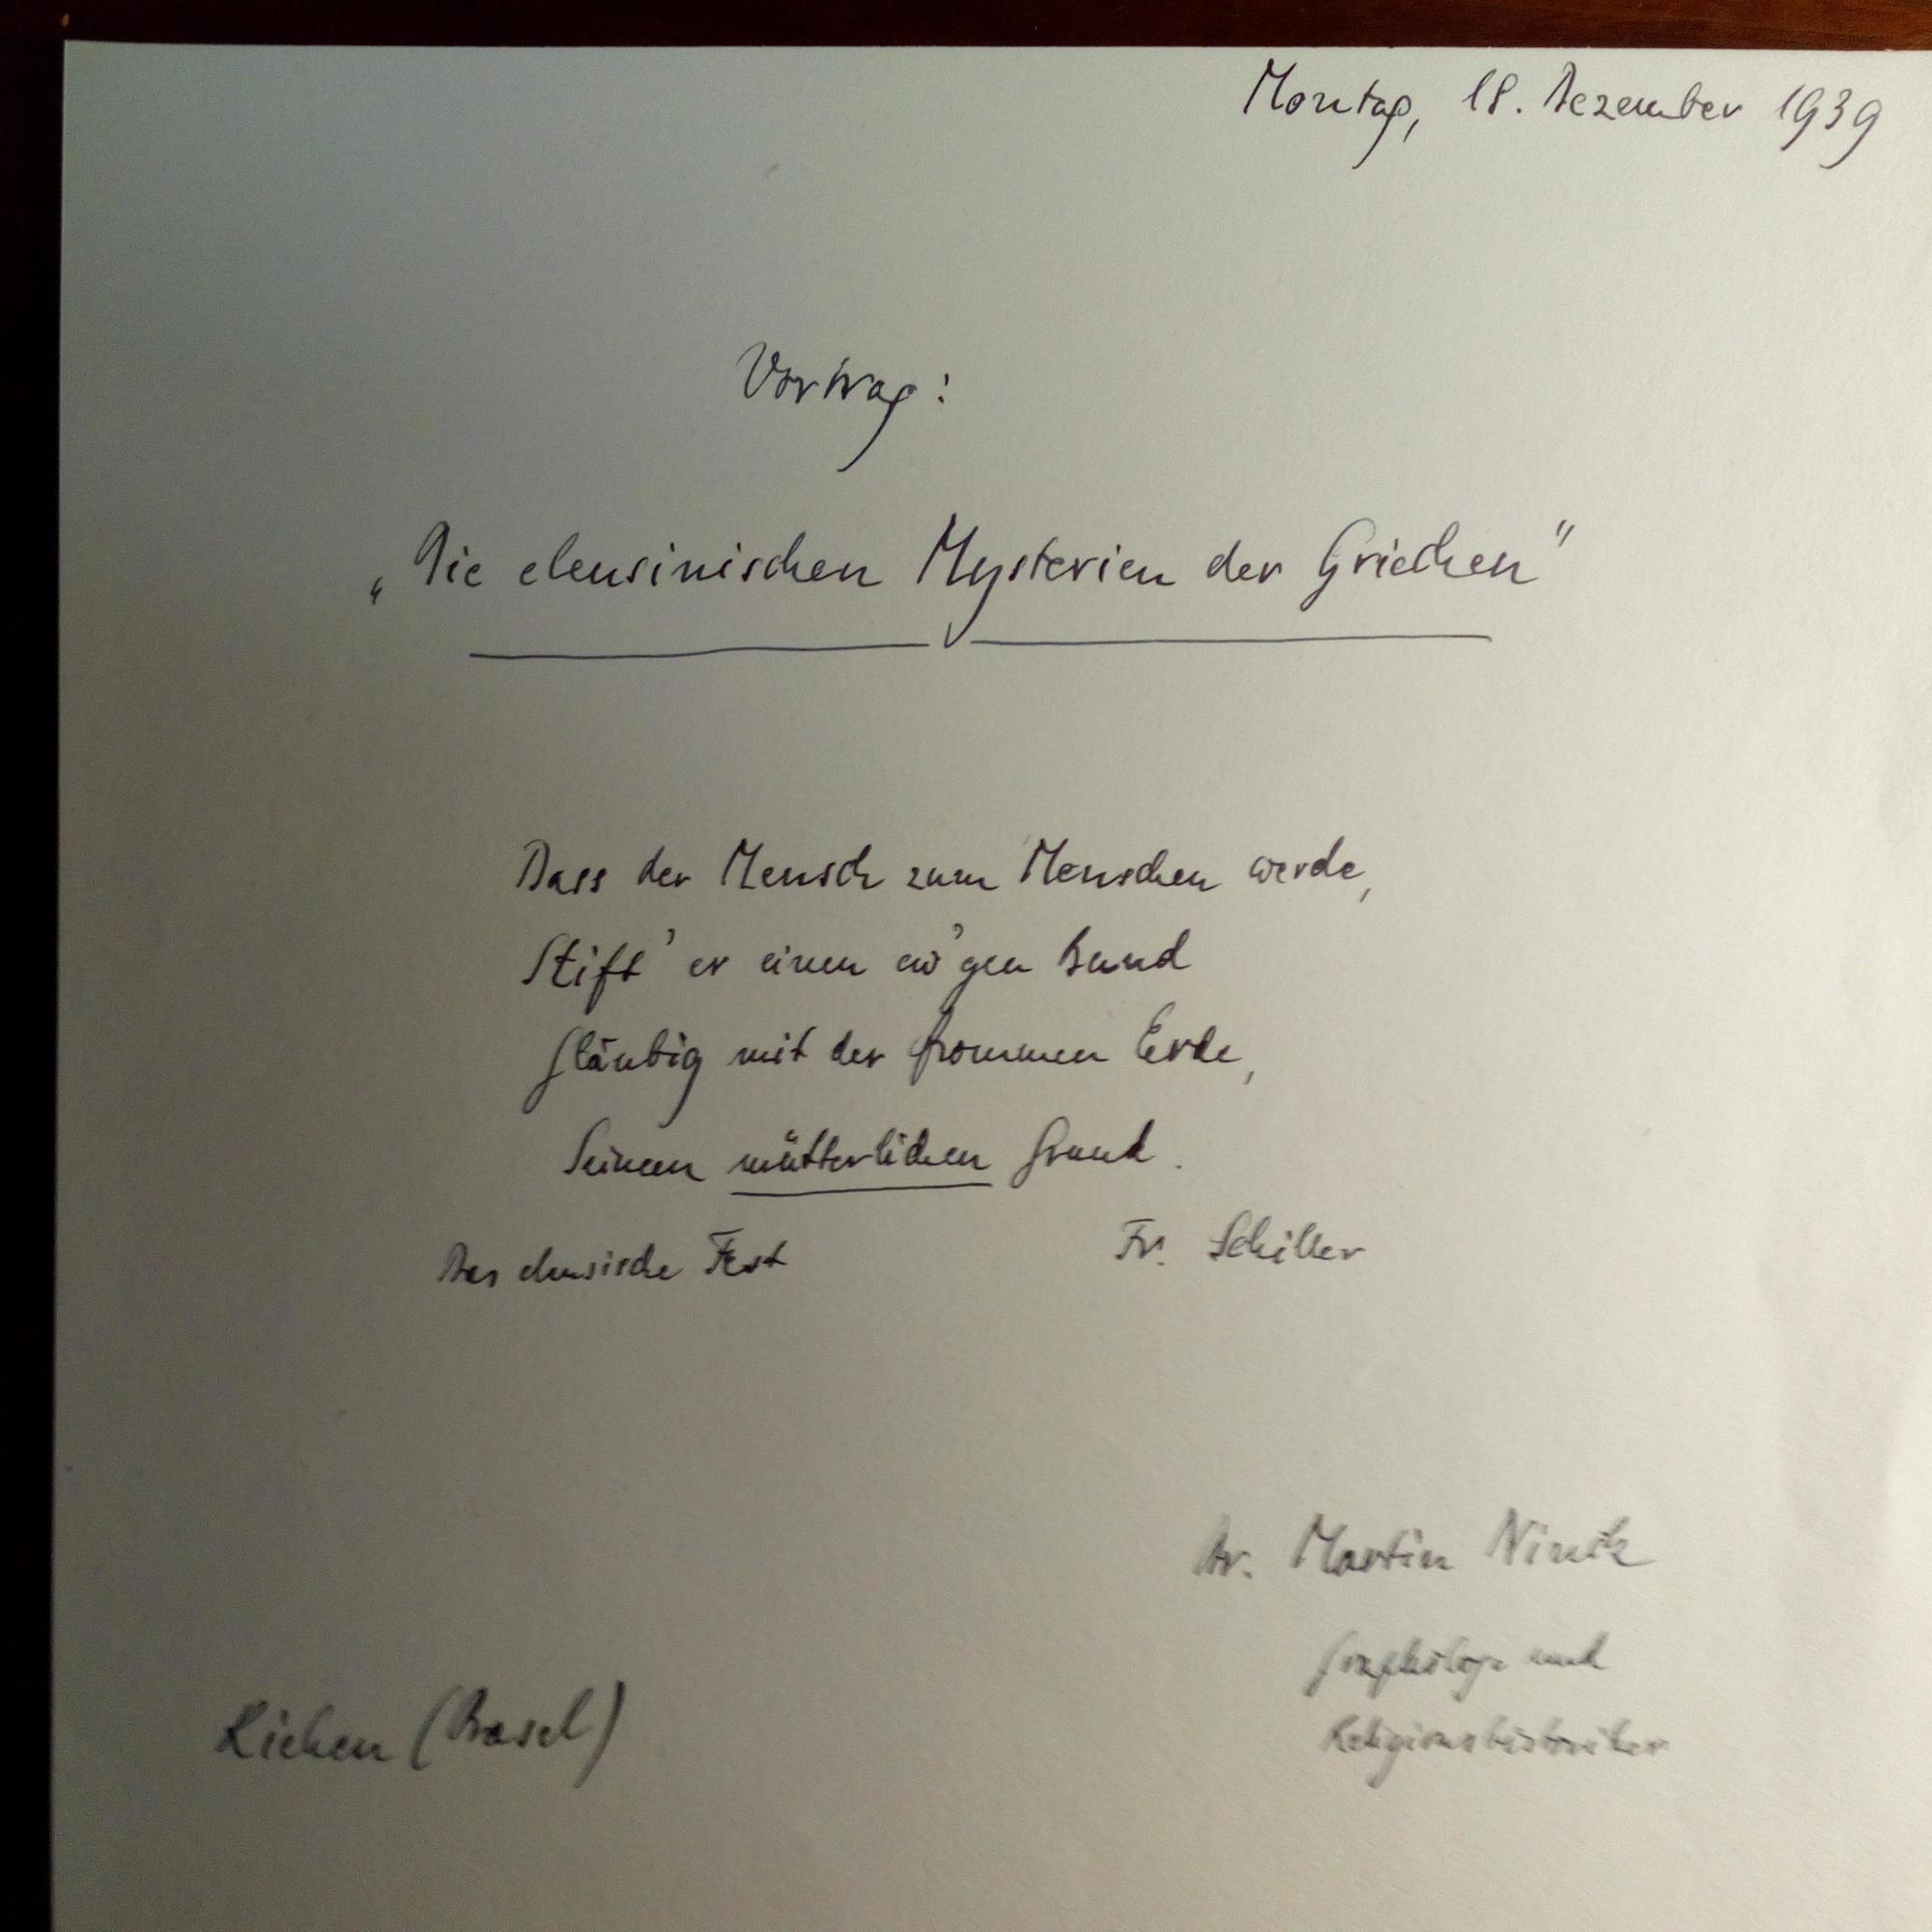 Montag, 18. Dezember 1939
Vortrag:
„Die eleusinischen Mysterien der Griechen"
Dass der Mensch zum Menschen werde,
Stift' er einen ew'gen Bund
Gläubig mit der frommen Erde,
Seinem mütterlichen Grund.
Das eleusische Fest
Fr. Schiller
Dr. Martin Ninck
Graphologe und
Riehen (Basel)
Religionshistoriker